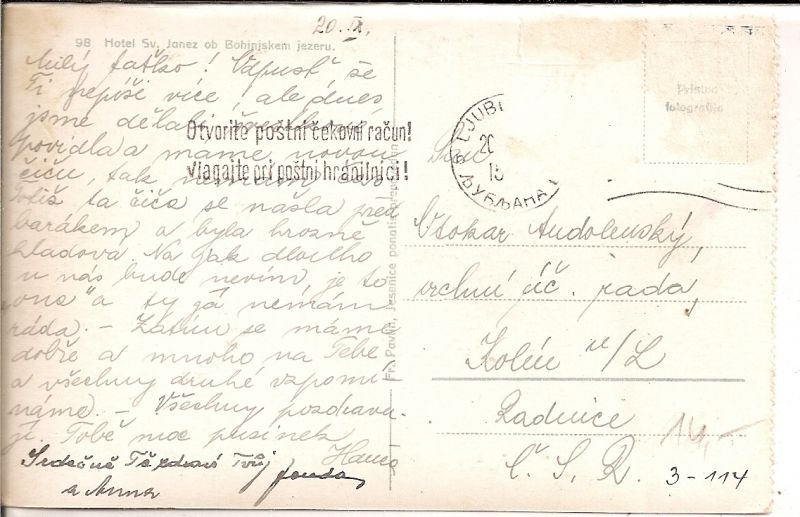 20. IX.
98 Hotel Sv. Janez ob Bohinjskem jezeru.
Milý taťko!
Ti nepíši více, ale dnes
jsme dělali švestková
povidla a máme novou
čiču, tak nemám
Totiž ta čiča se našla před
barákem a byla hrozně
hladová. Na jak dlouho
u nás bude nevím, je to
"ona" a ty já nemám
ráda. – Zatím se máme
dobře a mnoho na Tebe
a všechny druhé vzpomí-
náme. – Všechny pozdravu-
ji. Tobě moc pusinek
Hana
Srdečně Tě zdraví Tvůj
a Anna
Otvorite poštni čekovni račun!
Vlagajte pri poštni hranilnici!
LJUBLJANA
20
ЉУБЉАНА
Fr. Pavlin, Jesenice ponatis prepovedan
Pristna
fotografija
Pan
Otokar
vrchní úč. rada,
Kolín n/L
Radnice
Č. S. R.
14,-
3-114